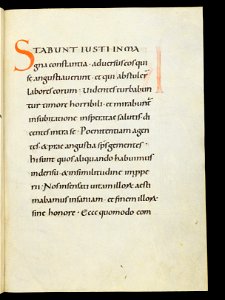 STABUNT IUSTI IN MA
gna constantia . adversus eos qui
se angustiaverunt . et qui abstuler
labores eorum . Videntes turbabun
tur timore horribili . et mirabunt
in subitatione insperatae salutis di
centes intra se . Poenitentiam agen
tes & prae angustia sps gementes .
hi sunt quos aliquando habuimus
in derisu & in similitudine impro
perii . Nos insensati vitam illorum aesti
mabamus insaniam . et finem illorum
sine honore . Ecce quomodo com